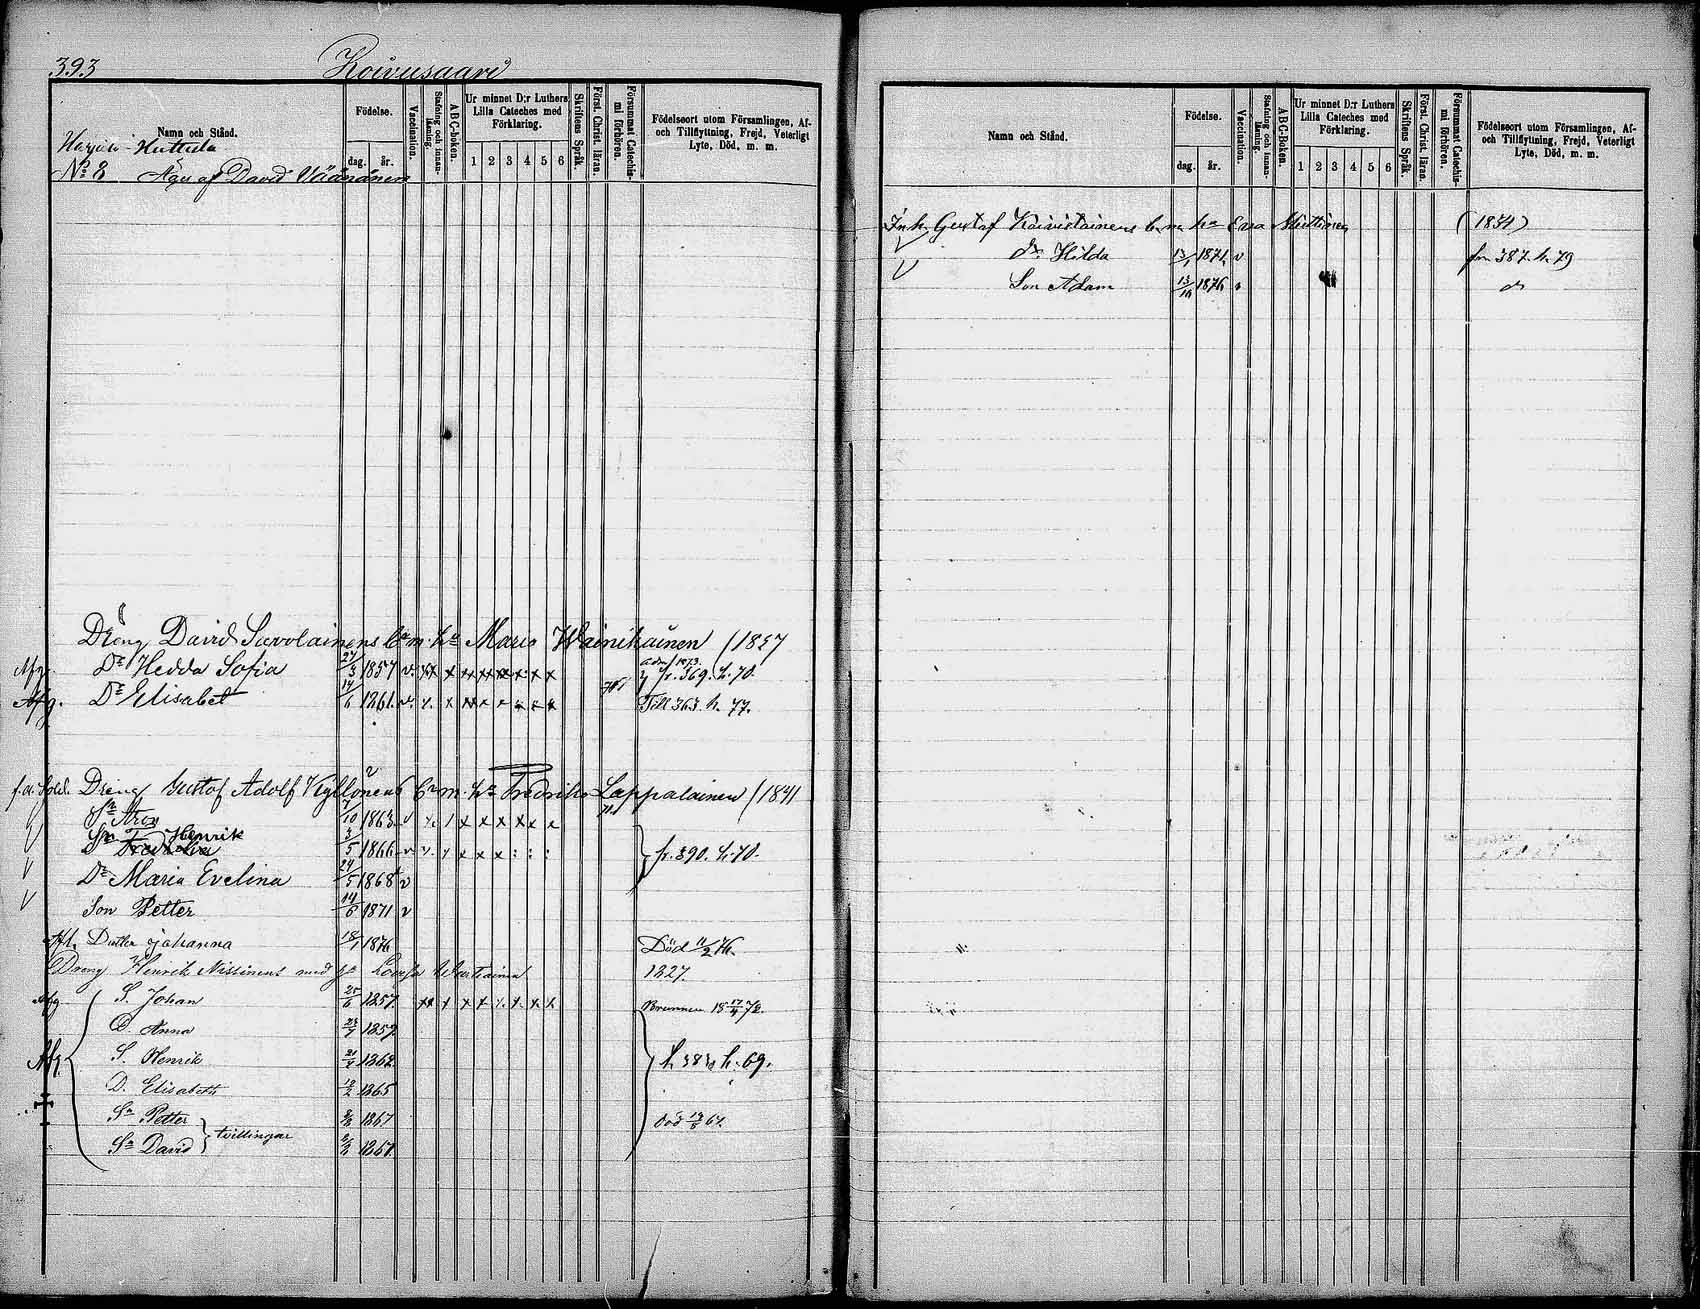 393 Koivusaari
Namn och Stånd.
Födelse.
dag. år.
Vaccination.
Stafning och innan-läsning.
A B C-boken.
Ur minnet D:r Luthers Lilla Cateches med Förklaring.
1 2 3 4 5 6
Skriftens Språk.
Först. Christ. läran.
Försummat Catechis-mi förhören.
Födelseort utom Församlingen, Af- och Tillflyttning, Frejd, Veterligt Lyte, Död, m. m.
Huttula
No 8 Äges af David Väänänen
Dräng David Savolainens bn m. ha Maria Wainikainen (1827
Afg. Dr Hedda Sofia 27/3 1857 v. adm. 1873. fr. 369. h. 70.
Afg. Dr Elisabet 14/6 1861. v. Till 363. h. 77.
f. d. Sold. Dräng Gustof Adolf Kyllönens bn m. ha Fredrika Lappalainen (1841
Sn Aron 7/10 1863. v
Sn Henrik 3/5 1866 v fr. 390. h. 70.
Dr Maria Evelina 24/5 1868 v
Son Petter 14/6 1871 v
Afl. Dotter Johanna 18/1 1876 Död 11/2 76.
Dräng Henrik Nissinens med ha Lovisa 1827.
Afg S. Johan 25/6 1857.
D. Anna 1859
Afg S. Henrik 1862
D. Elisabeth 12/2 1865 h. 69.
Sn Petter 1867 död 67.
Sn David } tvillingar 1867.
Namn och Stånd.
Födelse.
dag. år.
Vaccination.
Stafning och innan-läsning.
ABC-Boken.
Ur minnet D:r Luthers Lilla Cateches med Förklaring.
1 2 3 4 5 6
Skriftens Språk.
Först. Christ. läran.
Försummat Catechis-mi förhören.
Födelseort utom Församlingen, Af- och Tillflyttning, Frejd, Veterligt Lyte, Död, m. m.
Inh. Gustaf Koivistoinens bn m. ha Eva (1834)
dr. Hilda 13/1 1871, v fr. 387. h. 79
Son Adam 13/10 1876 v do